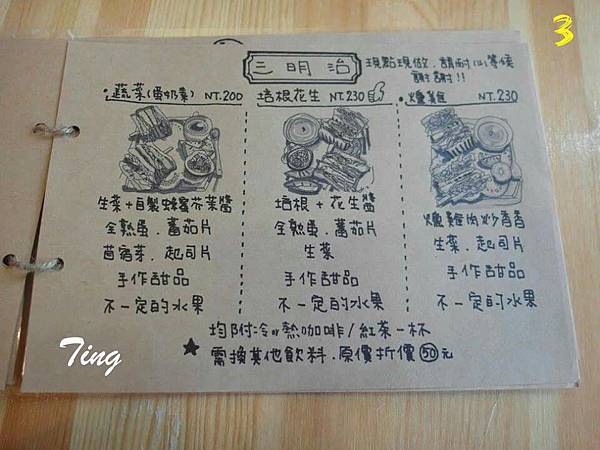 3
三明治
現點現做．請耐心等候
謝謝!!
蔬菜(蛋奶素) NT.200
生菜+自製蜂蜜芥茉醬
全熟蛋．蕃茄片
苜宿芽．起司片
手作甜品
不一定的水果
培根花生 NT.230
培根+花生醬
全熟蛋．蕃茄片
生菜
手作甜品
不一定的水果
燻雞 NT.230
燻雞肉炒香香
生菜．起司片
手作甜品
不一定的水果
均附冷or熱咖啡/紅茶一杯
★需換其他飲料．原價折價50元
Ting